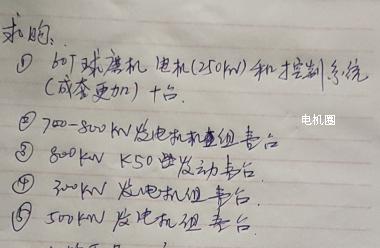 求购:
① 60T球磨机 电机(250KW)和控制系统
(成套更加) 十台.
② 700-800KW发电机机组 壹台
电机圈
③ 800KW K50 发动 壹台
④ 300KW 发电机组 壹台.
⑤ 500KW 发电机组 壹台.